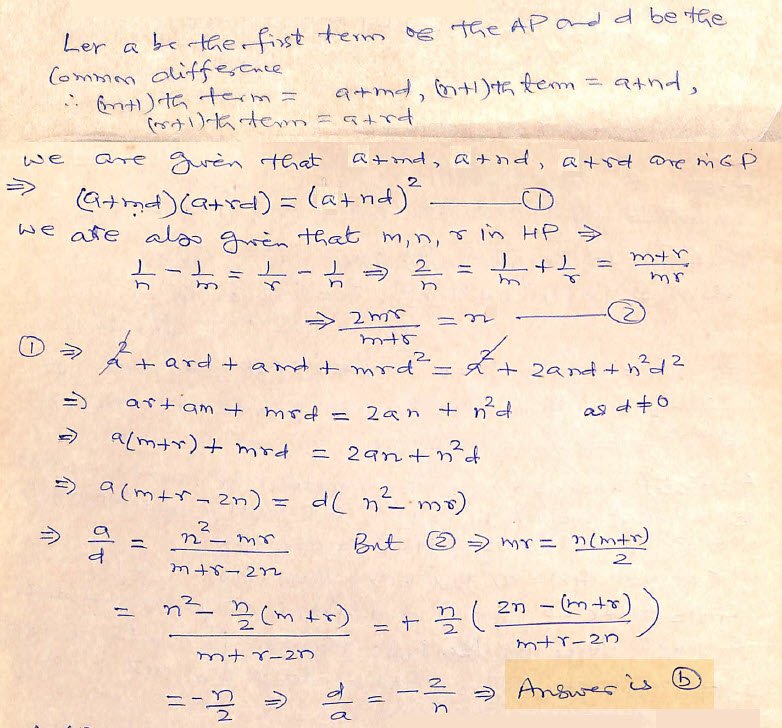 Let a be the first term of the AP and d be the
Common difference
∴ (m+1)th term = a+md, (n+1)th term = a+nd,
(r+1)th term = a+rd
we are given that a+md, a+nd, a+rd are in GP
⇒ (a+md)(a+rd) = (a+nd)² —— ①
we are also given that m, n, r in HP ⇒
1/n - 1/m = 1/r - 1/n ⇒ 2/n = 1/m + 1/r = (m+r)/(mr)
⇒ 2mr/(m+r) = n —— ②
① ⇒ a² + ard + amd + mrd² = a² + 2and + n²d²
⇒ ar + am + mrd = 2an + n²d as d≠0
⇒ a(m+r) + mrd = 2an + n²d
⇒ a(m+r-2n) = d(n²-mr)
⇒ a/d = (n²-mr)/(m+r-2n) But ② ⇒ mr = n(m+r)/2
= (n² - n/2 (m+r))/(m+r-2n) = + n/2 ((2n-(m+r))/(m+r-2n))
= - n/2 ⇒ d/a = - 2/n ⇒ Answer is ⓑ